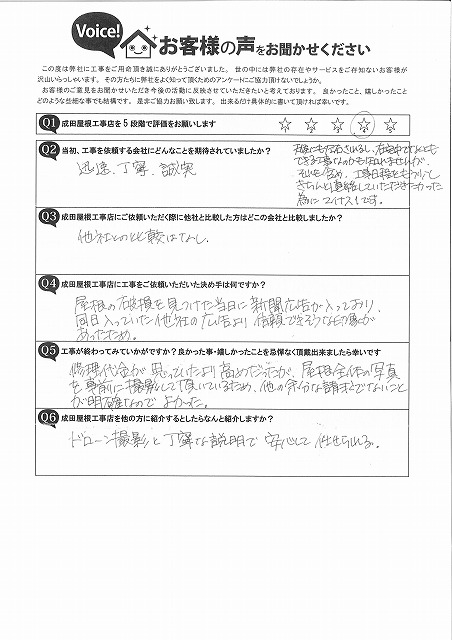 Voice!
お客様の声をお聞かせください
この度は弊社に工事をご用命頂き誠にありがとうございました。世の中には弊社の存在やサービスをご存知ないお客様が
沢山いらっしゃいます。その方たちに弊社をよく知って頂くためのアンケートにご協力頂けないでしょうか。
お客様のご意見をお聞かせいただき今後の活動に反映させていただきたいと考えております。良かったこと、嬉しかったこと
どのような些細な事でも結構です。是非ご協力お願い致します。出来るだけ具体的に書いて頂ければ幸いです。
Q1 成田屋根工事店を5段階で評価をお願いします ☆ ☆ ☆ ☆ ☆
Q2 当初、工事を依頼する会社にどんなことを期待されていましたか?
迅速、丁寧、誠実
天候にも左右されるし、在宅中でなくとも
できる工事なのかも知れませんが、
それも含め、工事日程をもう少し
きちんと連絡していただきたかった
為に マイナス1です。
Q3 成田屋根工事店にご依頼いただく際に他社と比較した方はどこの会社と比較しましたか?
他社との比較はなし。
Q4 成田屋根工事店に工事をご依頼いただいた決め手は何ですか?
屋根の破損を見つけた当日に新聞広告が入っており、
同日入っていた他社の広告より信頼できそうな印象が
あったため。
Q5 工事が終わってみていかがですか?良かった事・嬉しかったことを忌憚なく頂戴出来ましたら幸いです
修理代金が見っていたより高めだったが、屋根全体の写真
を事前に撮影して頂いているため、他の余分な請求でないこと
が明確なので よかった。
Q6 成田屋根工事店を他の方に紹介するとしたらなんと紹介しますか?
ドローン撮影と丁寧な説明で 安心して 任せられる。